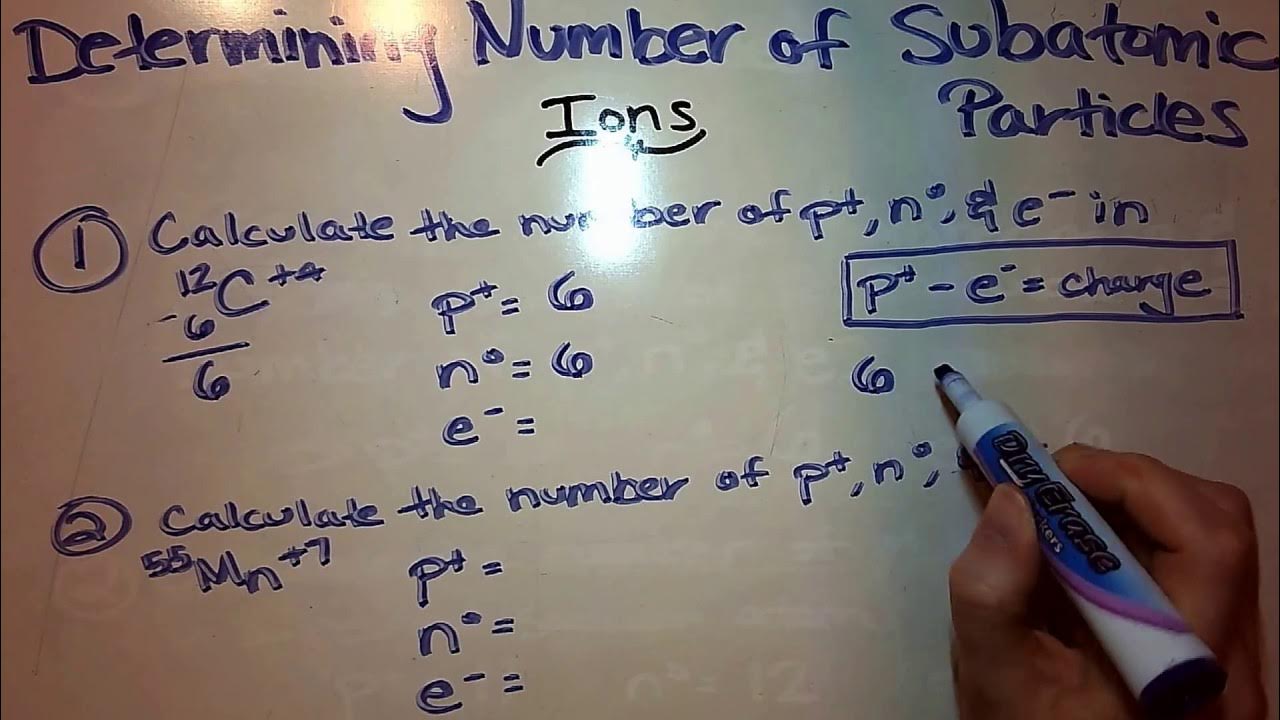 Determining Number of Subatomic
Particles
Ions
① Calculate the number of p⁺, n°, & e⁻ in
¹²C⁺⁴ p⁺ = 6 p⁺ - e⁻ = charge
-6
6 n° = 6 6
e⁻ =
② Calculate the number of p⁺, n°,
⁵⁵Mn⁺⁷ p⁺ =
n° =
e⁻ =
Dry Erase
n° = 12